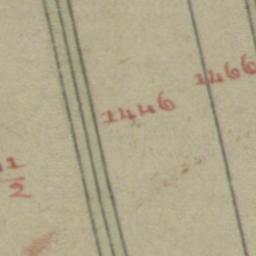 1466
1446
1/2